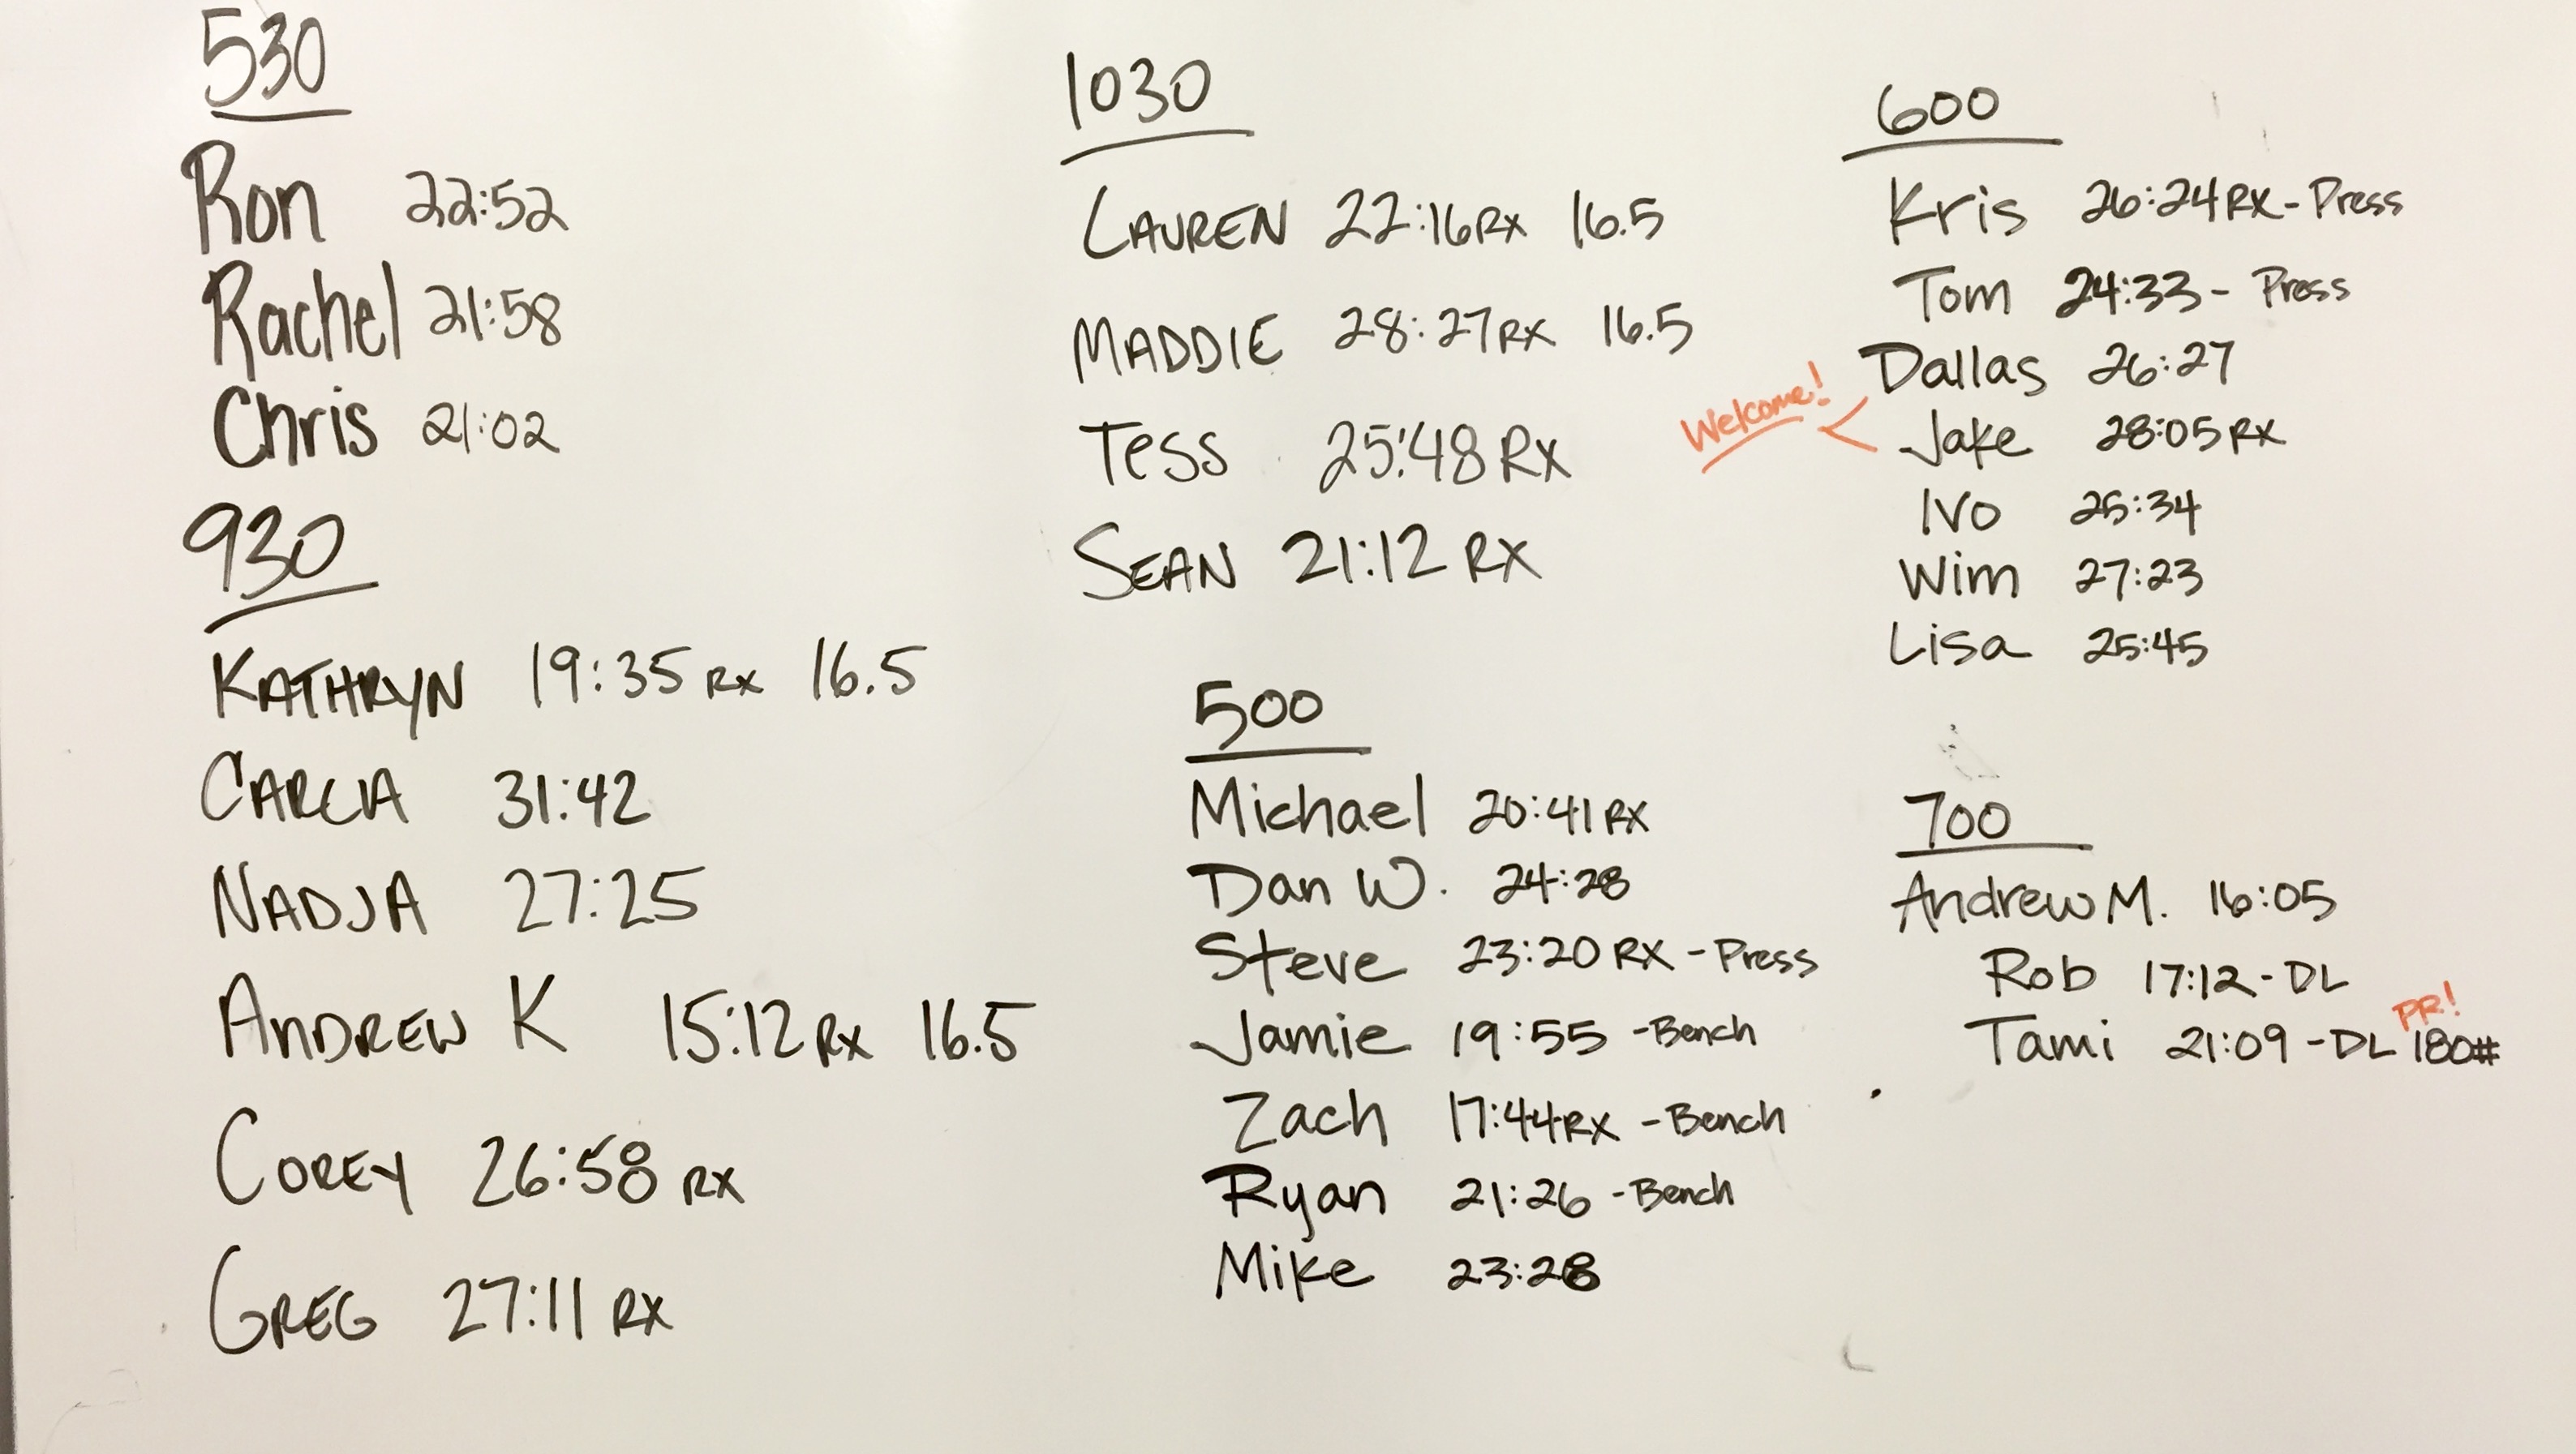 530
Ron 22:52
Rachel 21:58
Chris 21:02
930
KATHRYN 19:35 RX 16.5
CARLA 31:42
NADJA 27:25
ANDREW K 15:12 RX 16.5
COREY 26:58 RX
GREG 27:11 RX
1030
LAUREN 22:16 RX 16.5
MADDIE 28:27 RX 16.5
Tess 25:48 RX
SEAN 21:12 RX
500
Michael 20:41 RX
Dan W. 24:28
Steve 23:20 RX - Press
Jamie 19:55 - Bench
Zach 17:44 RX - Bench
Ryan 21:26 - Bench
Mike 23:28
600
Kris 26:24 RX - Press
Tom 24:33 - Press
Dallas 26:27
Welcome!
Jake 28:05 RX
Ivo 25:34
Wim 27:23
Lisa 25:45
700
Andrew M. 16:05
Rob 17:12 - DL
PR!
Tami 21:09 - DL 180#